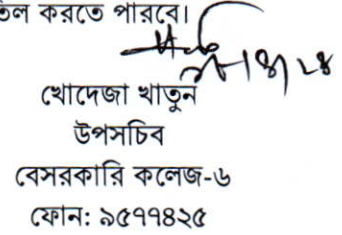 করতে পারবে।
খোদেজা খাতুন
উপসচিব
বেসরকারি কলেজ-৬
ফোন: ৯৫৭৭৪২৫